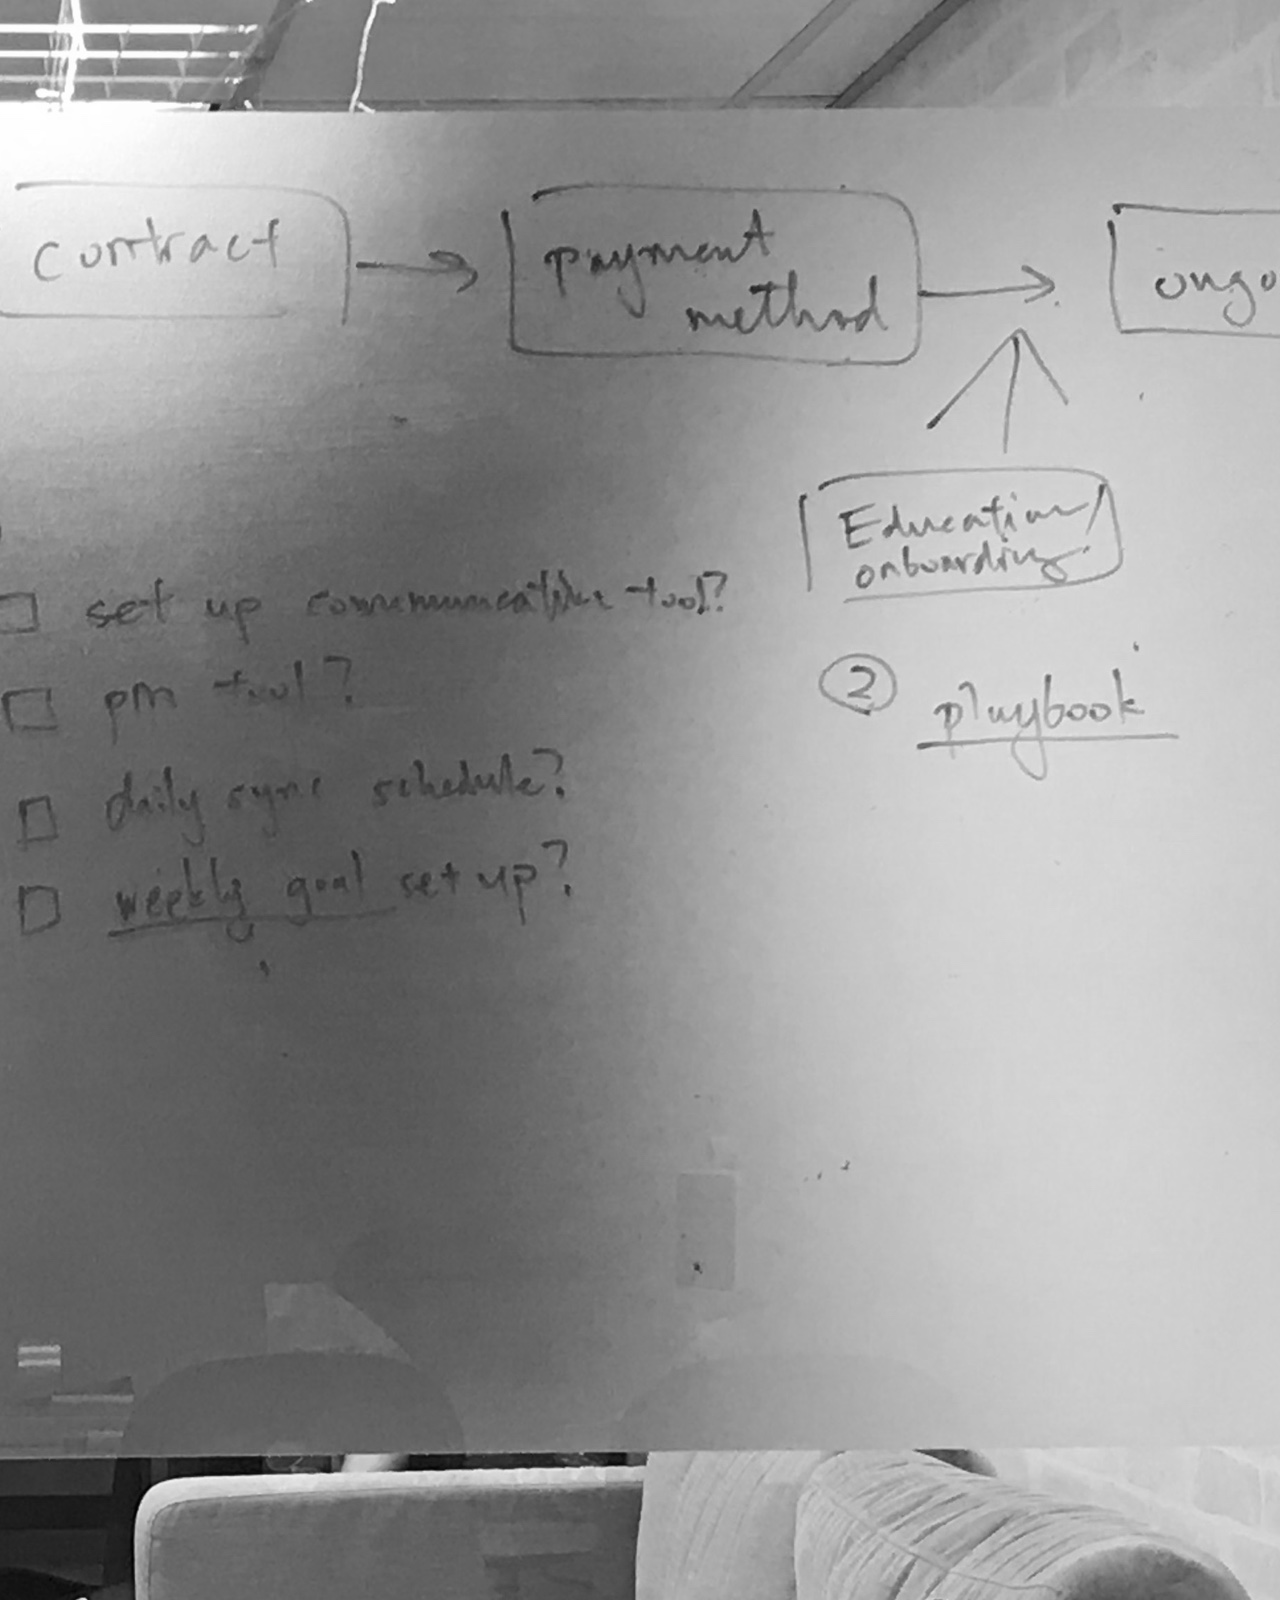 contract
payment
method
ongo
Education/
onboarding
set up communication tool?
pm tool?
daily sync schedule?
weekly goal set up?
2 playbook